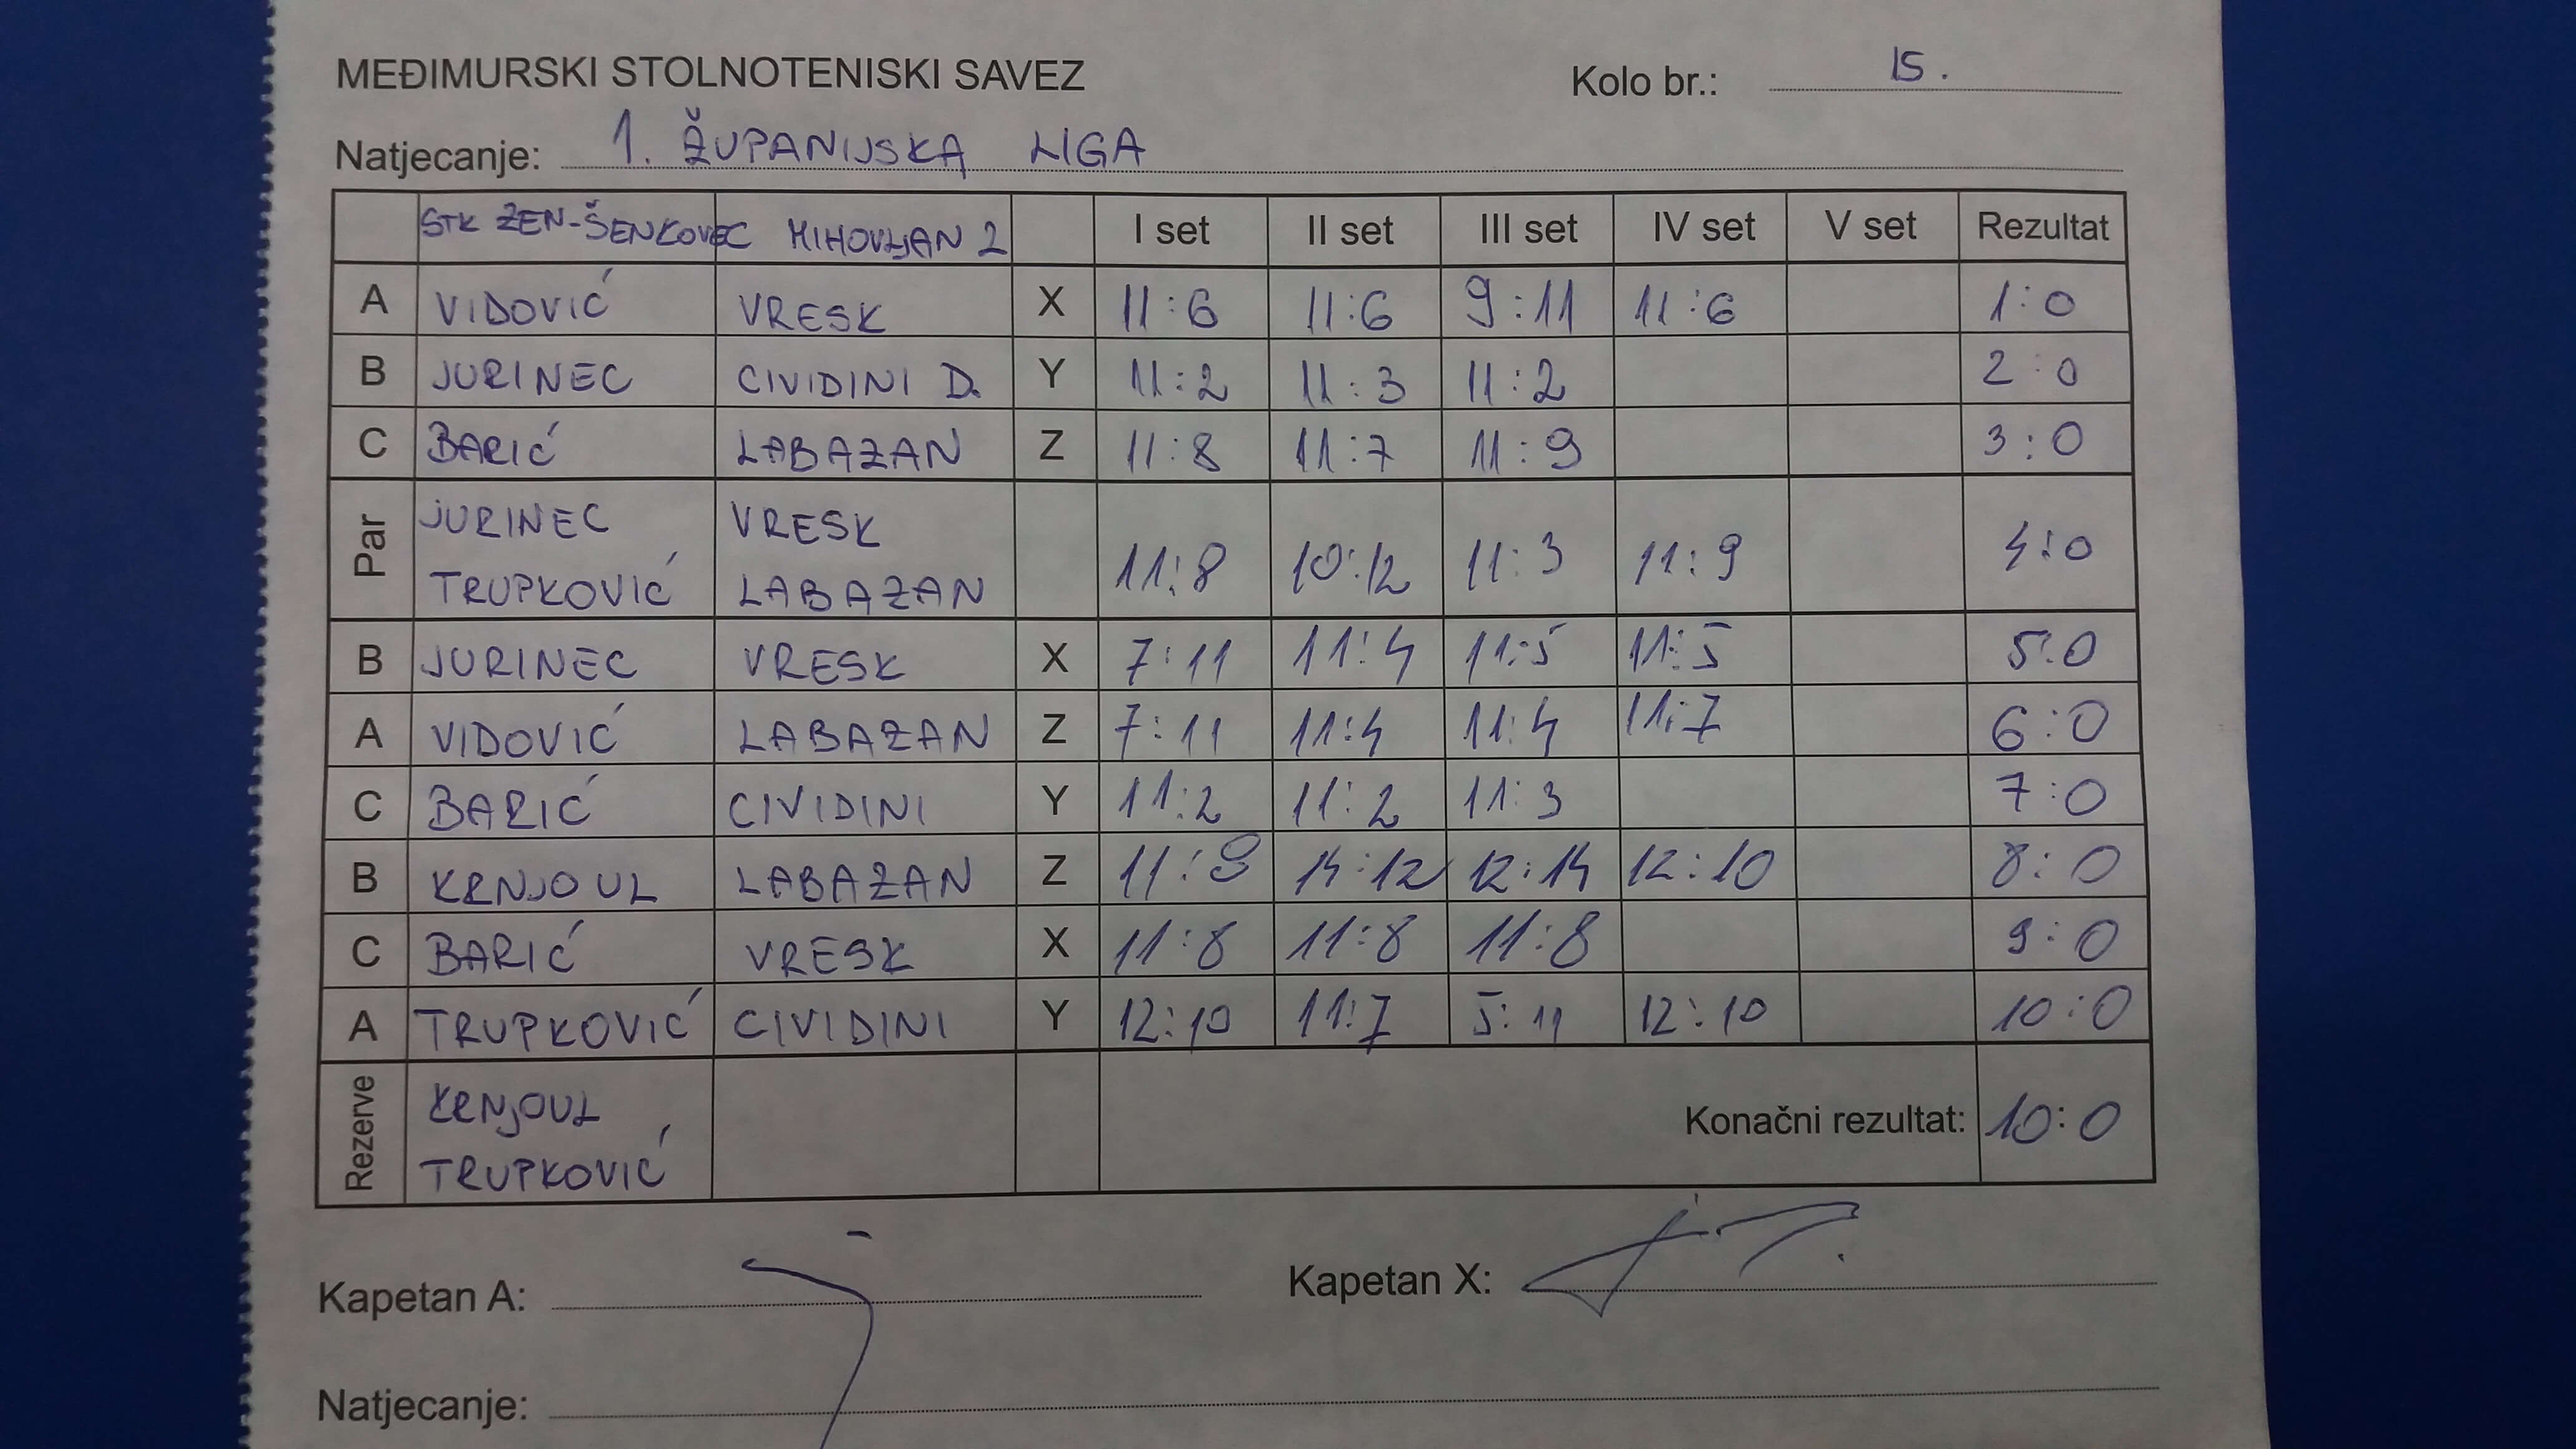 MEĐIMURSKI STOLNOTENISKI SAVEZ Kolo br.: 15.
Natjecanje: 1. ŽUPANIJSKA LIGA
STK ZEN-ŠENKOVEC MIHOVLJAN 2 I set II set III set IV set V set Rezultat
A VIDOVIĆ VRESK X 11:6 11:6 9:11 11:6 1:0
B JURINEC CIVIDINI D. Y 11:2 11:3 11:2 2:0
C BARIĆ LABAZAN Z 11:8 11:7 11:9 3:0
Par JURINEC VRESK
TRUPKOVIĆ LABAZAN 11:8 10:12 11:3 11:9 4:0
B JURINEC VRESK X 7:11 11:4 11:5 11:5 5:0
A VIDOVIĆ LABAZAN Z 7:11 11:4 11:4 11:7 6:0
C BARIĆ CIVIDINI Y 11:2 11:2 11:3 7:0
B KRNJOUL LABAZAN Z 11:9 14:12 12:14 12:10 8:0
C BARIĆ VRESK X 11:8 11:8 11:8 9:0
A TRUPKOVIĆ CIVIDINI Y 12:10 11:7 5:11 12:10 10:0
Rezerve KRNJOUL
TRUPKOVIĆ
Konačni rezultat: 10:0
Kapetan A: Kapetan X:
Natjecanje: